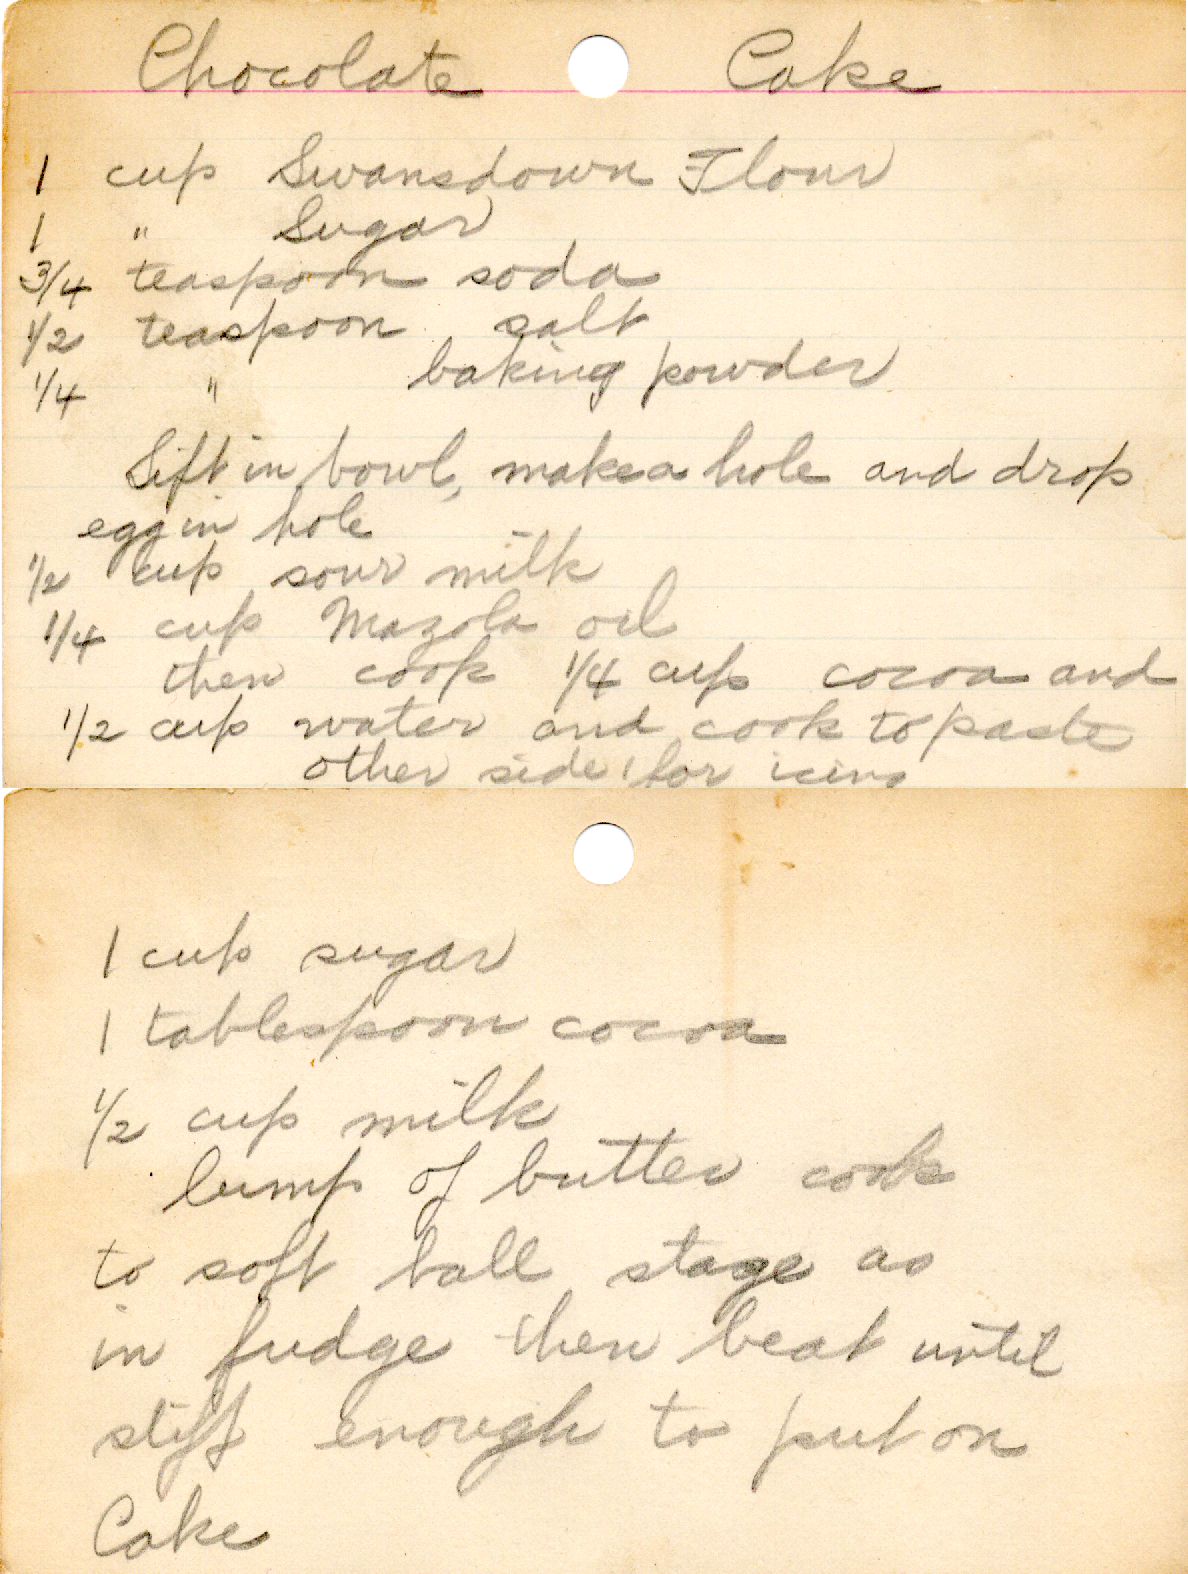 Chocolate Cake
1 cup Swansdown Flour
1 " Sugar
3/4 teaspoon soda
1/2 teaspoon salt
1/4 " baking powder
Sift in bowl, make a hole and drop
egg in hole
1/2 cup sour milk
1/4 cup Mazola oil
then cook 1/4 cup cocoa and
1/2 cup water and cook to paste
other side for icing
1 cup sugar
1 tablespoon cocoa
1/2 cup milk
lump of butter cook
to soft ball stage as
in fudge then beat until
stiff enough to put on
Cake